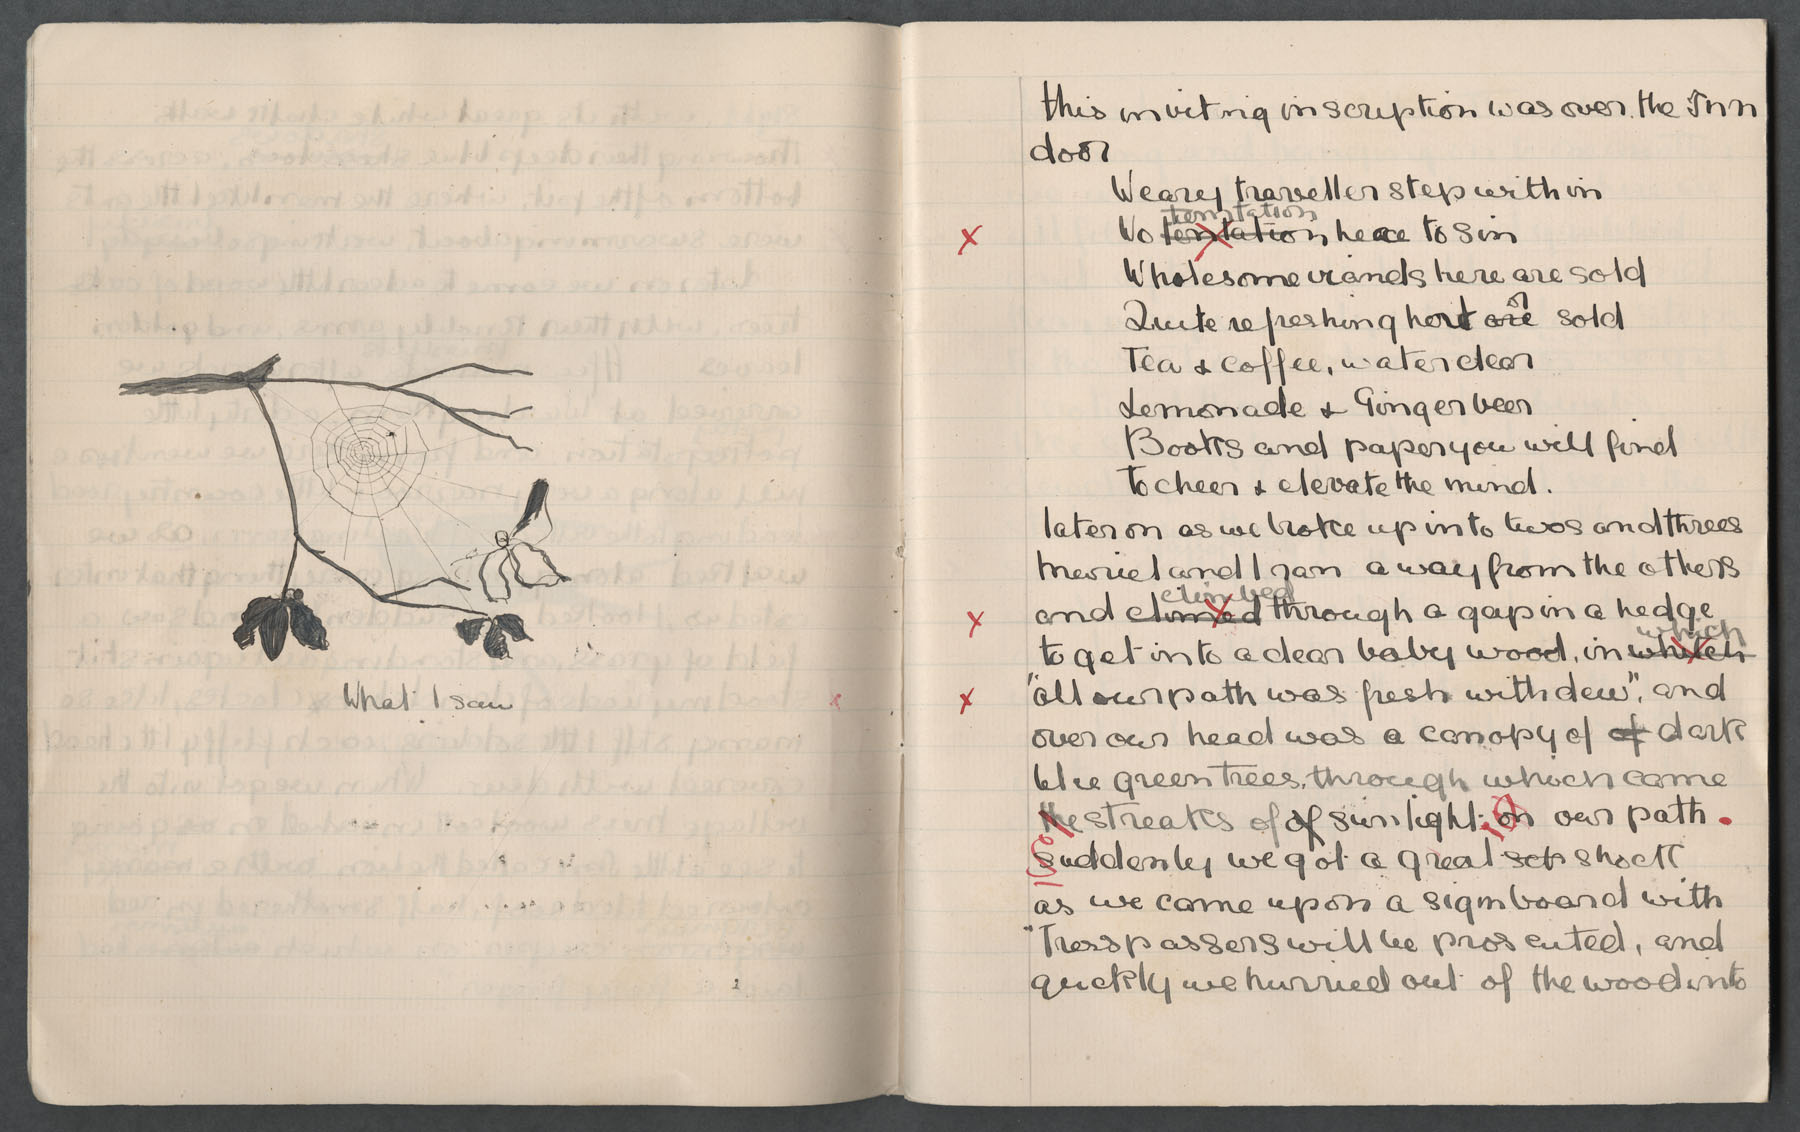 What I saw
this inviting inscription was over the Inn
door
Weary traveller step within
temptation
No tentation here to sin
Wholesome viands here are sold
Quite refreshing hot or sold
Tea & coffee, water clear
Lemonade & Ginger beer
Books and paper you will find
To cheer & elevate the mind.
later on as we broke up into twos and threes
Meriel and I ran away from the others
climbed
and climed through a gap in a hedge
which
to get into a dear baby wood, in whitch
"all our path was fresh with dew", and
over our head was a canopy of of dark
blue green trees, through which came
the streaks of of sunlight on our path.
suddenly we got a great shock
as we came upon a signboard with
"Tresspassers will be prosecuted, and
quickly we hurried out of the wood into